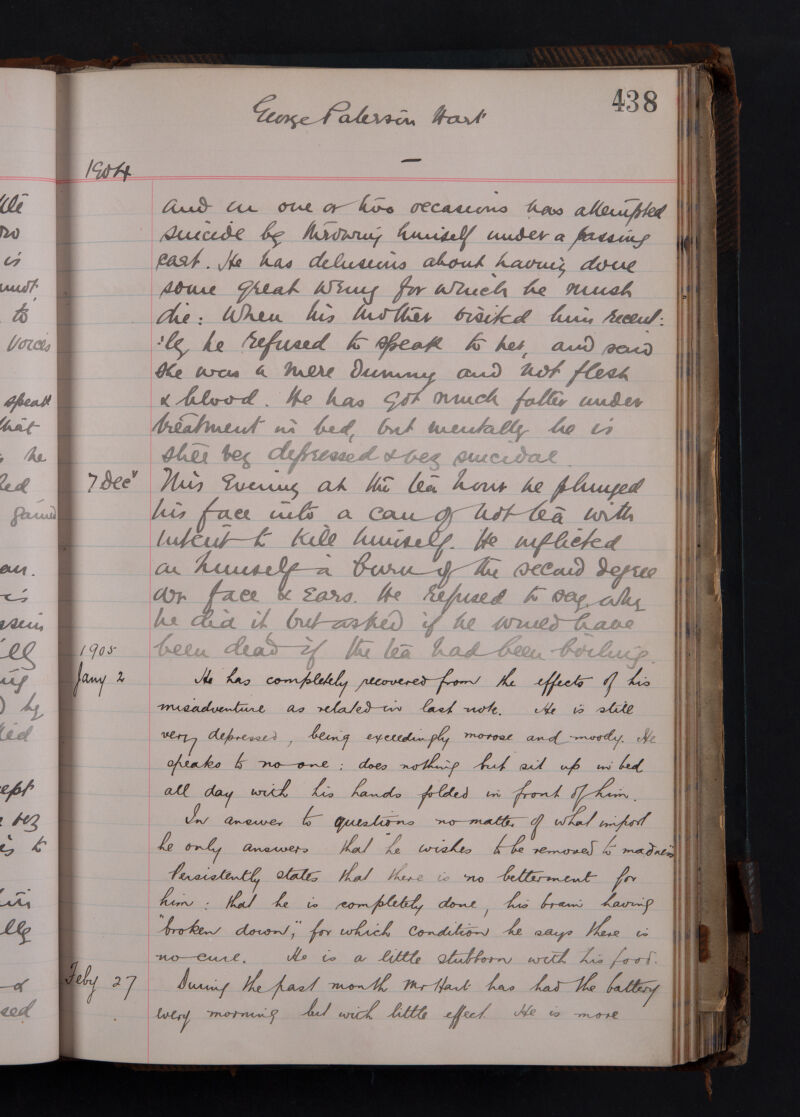 438
George Paterson Hart
1904
and in one or two occasions has attempted
suicide by throwing himself under a passing
cart. He has delusions about having done
some great wrong for which he must
die: When his mother visited him recent:
:ly he refused to speak to her, and said
she was a mere dummy and not flesh
& blood. He has got much fatter under
treatment in bed, but mentally he is
still very depressed & very suicidal
7 Decr This Evening at the tea hour he plunged
his face into a can of hot tea with
intent to kill himself. He inflicted
on himself a burn of the second degree
on face & ears. He refused to say why
he did it but asked if he would have
been dead if the tea had been boiling.
1905
Jany 2 He has completely recovered from the effects of his
misadventure as related in last note. He is still
very depressed, being exceedingly morose and moody. He
speaks to no one: does nothing but sit up in bed
all day with his hands folded in front of him.
In answer to questions no matter of what import
he only answers that "he wishes to be removed to madness
Persistently states that there is no betterment for
him: that he is completely done, his brain having
"broken down", for which condition he says there is
no cure. He is a little stubborn with his food.
Feby 27 During the past month Mr Hart has had the battery
every morning but with little effect He is more